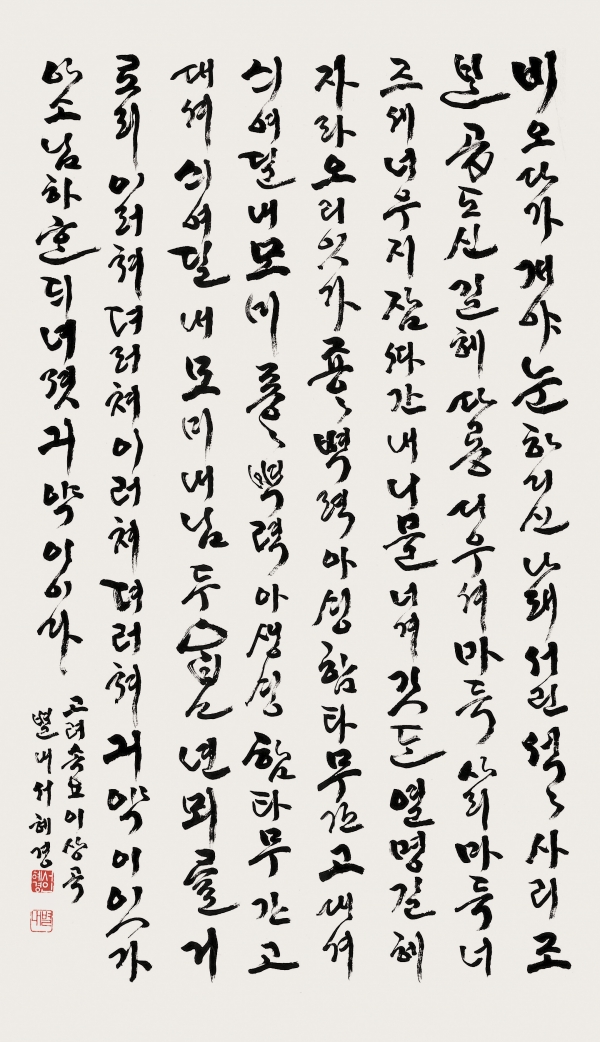 비오다가개야눈하디신나래서린석〻사리조
븐곱도신길헤다롱디우셔마득사리마득너
즈세너우지잠ᄯᅡ간내니믈너겨깃든열명길헤
자라오리잇가죵〻벽력아싱함타무간고대셔
싀여딜내모미죵〻벽력아생싱함타무간고
대셔싀여딜내모미내님두고년뫼를거
로리이러쳐뎌러쳐이러쳐뎌러쳐긔약이잇가
아소님하ᄒᆞᆫᄃᆡ녀졋긔약이이다
고려속요이상곡
별내서혜경